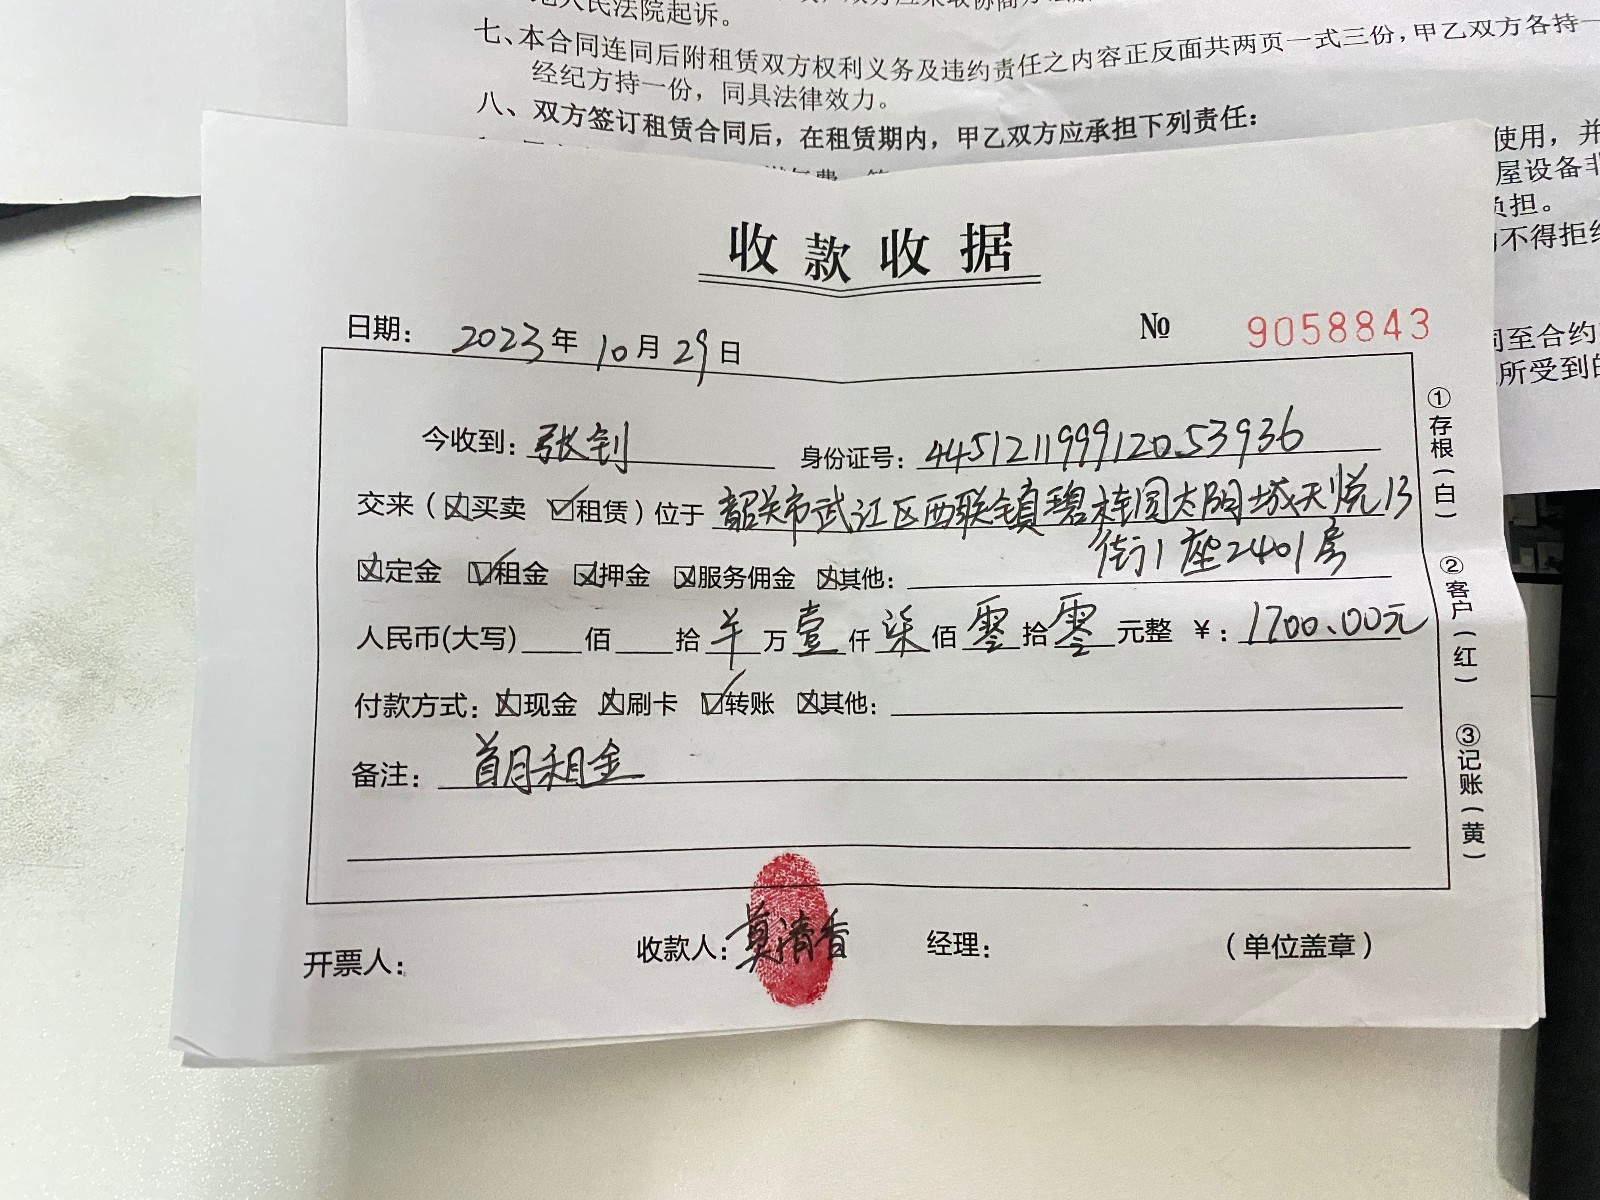 人民法院起诉。
七、本合同连同后附租赁双方权利义务及违约责任之内容正反面共两页一式三份，甲乙双方各持一
经纪方持一份，同具法律效力。
八、双方签订租赁合同后，在租赁期内，甲乙双方应承担下列责任：
使用，并
屋设备非
负担。
不得拒绝
同至合约
所受到的
收款收据
日期： 2023年10月29日
№ 9058843
今收到：张钊 身份证号：445121199912053936
交来（☒买卖 ☑租赁）位于 韶关市武江区西联镇碧桂园太阳城天悦13
街1座2401房
☒定金 ☑租金 ☒押金 ☒服务佣金 ☒其他：
人民币(大写) 佰 拾 万壹仟柒佰零拾零元整 ￥：1700.00元
付款方式：☒现金 ☒刷卡 ☑转账 ☒其他：
备注： 首月租金
开票人： 收款人：莫清香 经理： （单位盖章）
①存根（白）
②客户（红）
③记账（黄）